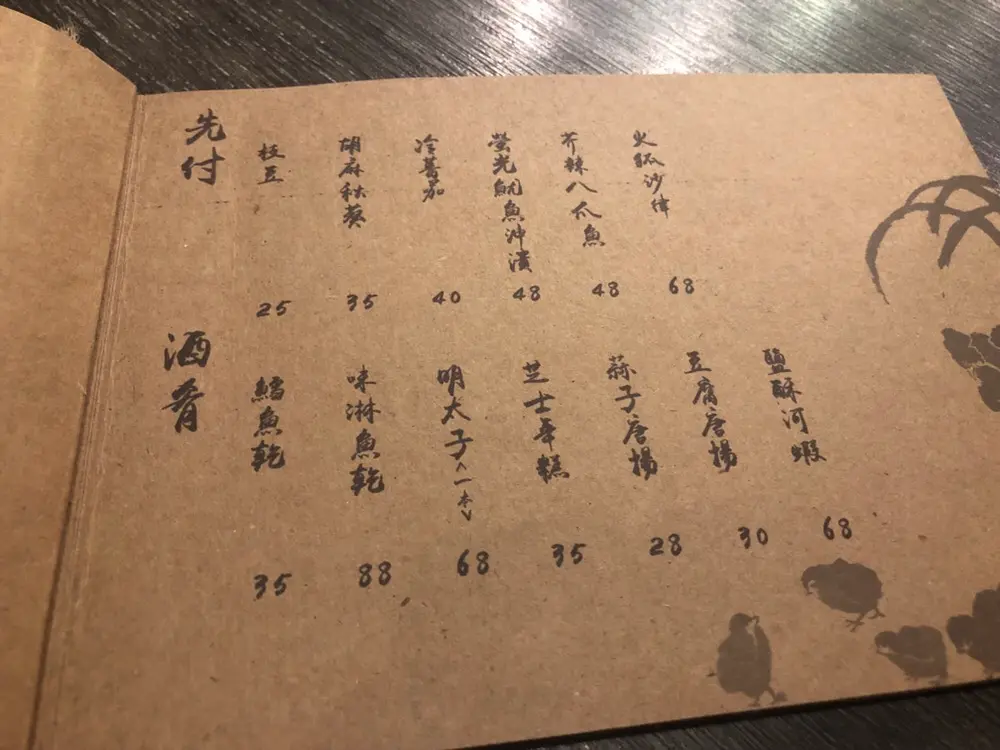 先付
枝豆
25
胡麻秋葵
35
冷蕃茄
40
螢光魷魚沖漬
48
芥辣八爪魚
48
火弧沙律
68
酒肴
鱈魚乾
35
味淋魚乾
88
明太子(一本)
68
芝士年糕
35
蒜子唐揚
28
豆腐唐揚
30
鹽酥河蝦
68